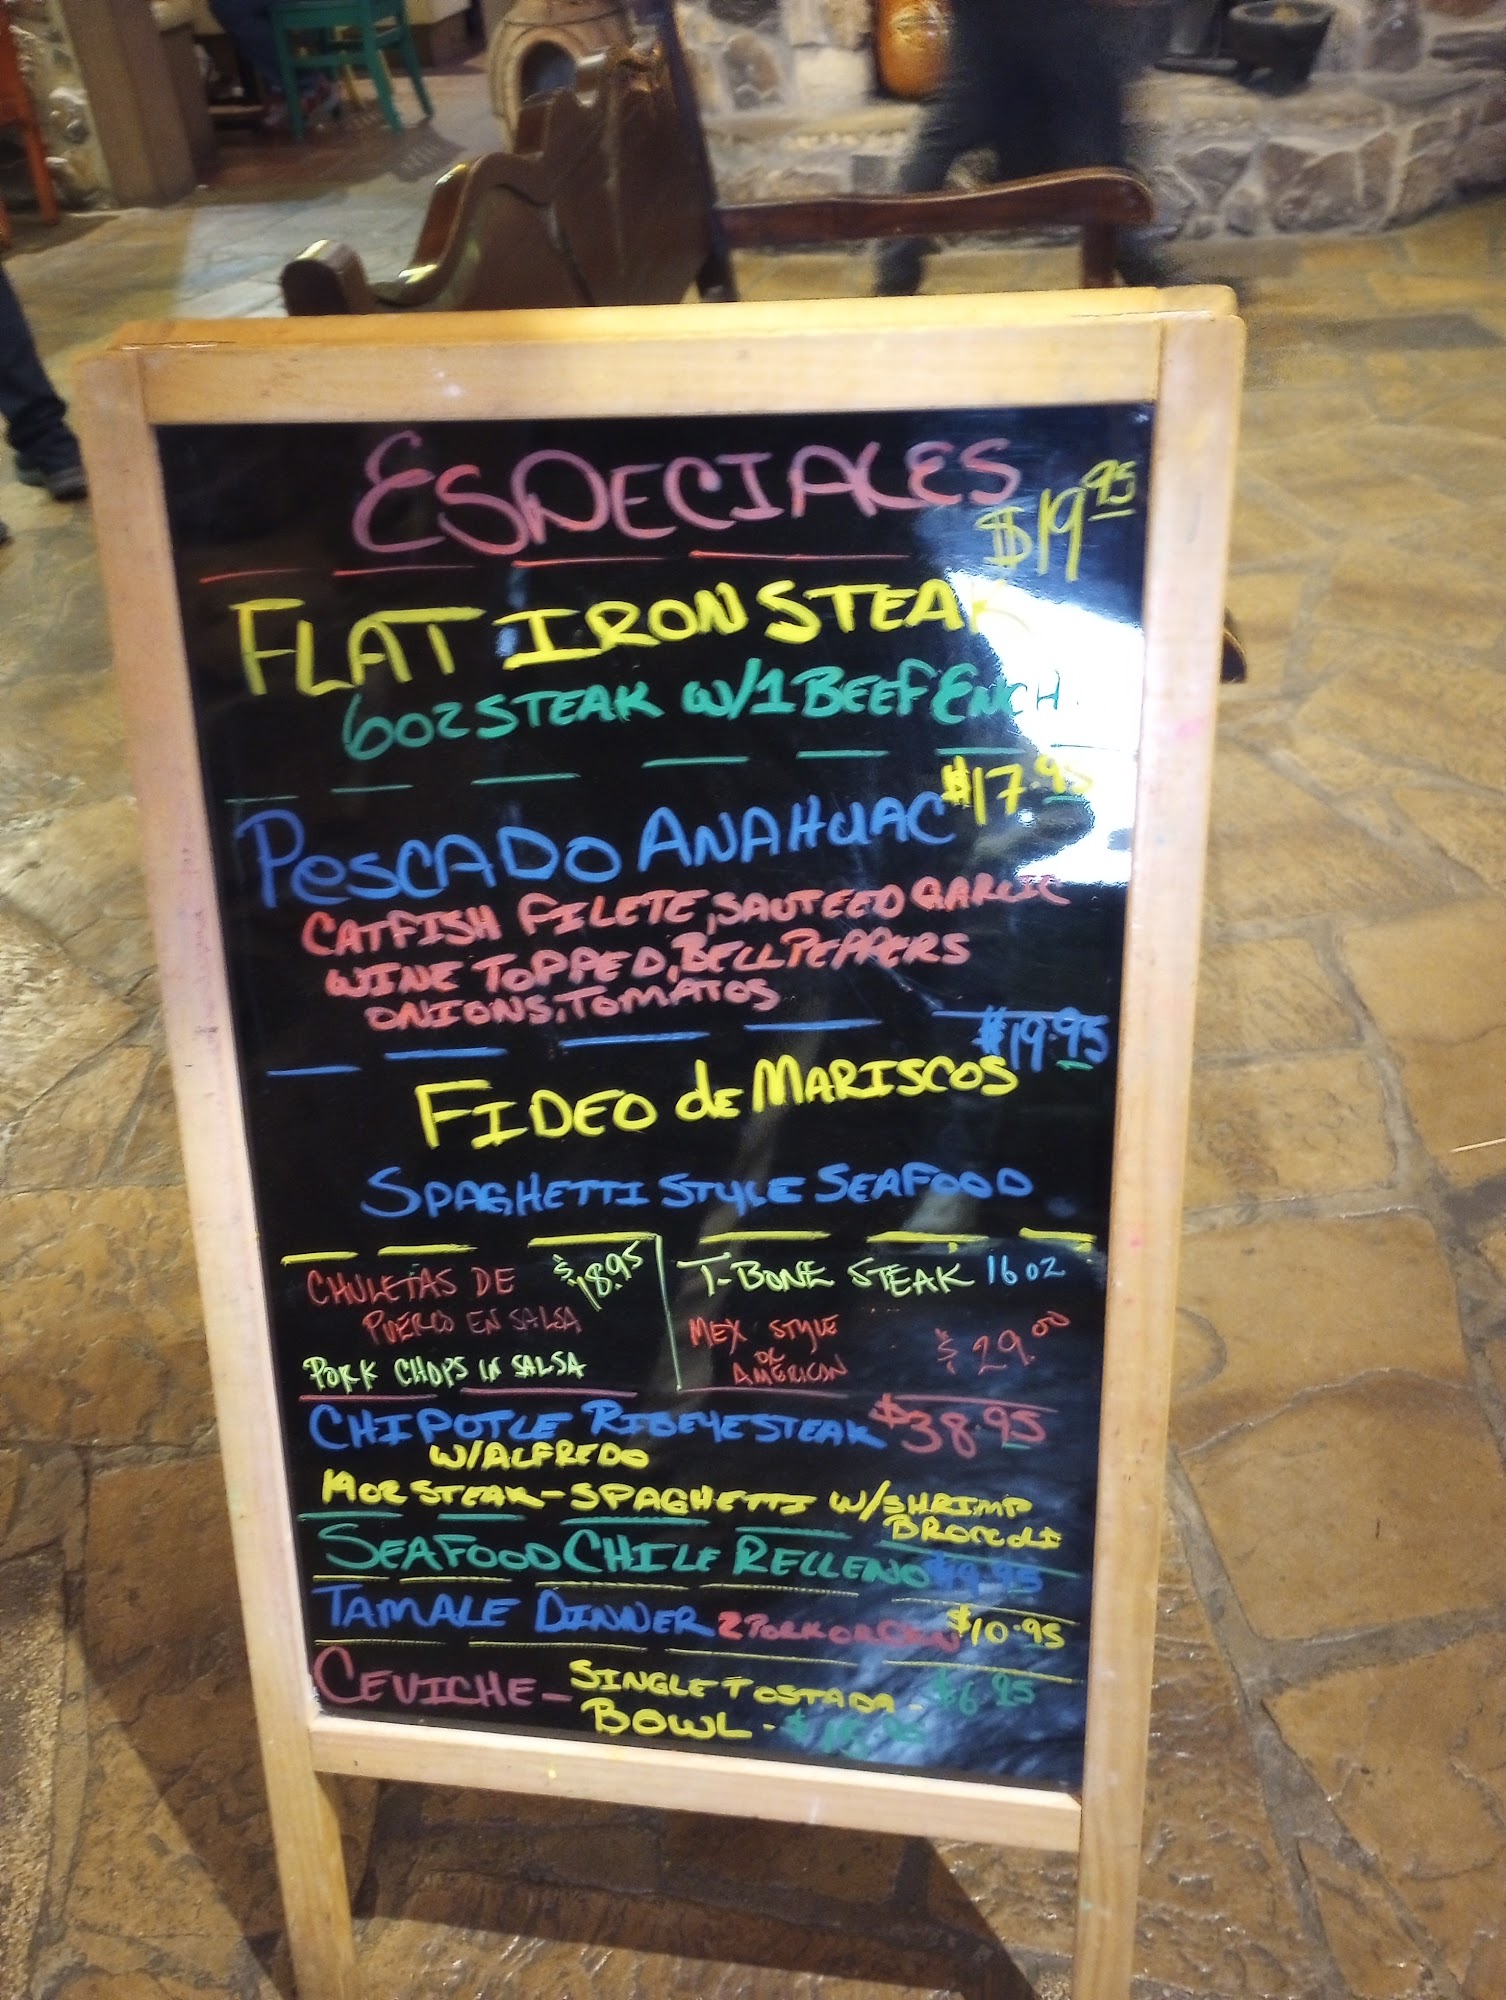 ESPECIALES
$19.95
FLAT IRON STEAK
6oz STEAK W/1 BEEF ENCH.
$17.95
PESCADO ANAHUAC
CATFISH FILETE, SAUTEED GARLIC
WINE TOPPED, BELL PEPPERS
ONIONS, TOMATOS
$19.95
FIDEO de MARISCOS
SPAGHETTI STYLE SEAFOOD
CHULETAS DE $18.95
PUERCO EN SALSA
PORK CHOPS IN SALSA
T-BONE STEAK 16 oz
MEX STYLE
OR
AMERICAN
$29.00
CHIPOTLE RIBEYE STEAK $38.95
W/ALFREDO
14oz STEAK - SPAGHETTI W/SHRIMP
BROCCOLI
SEAFOOD CHILE RELLENO
TAMALE DINNER 2 PORK OR CKN $10.95
CEVICHE - SINGLE TOSTADA - $6.95
BOWL -